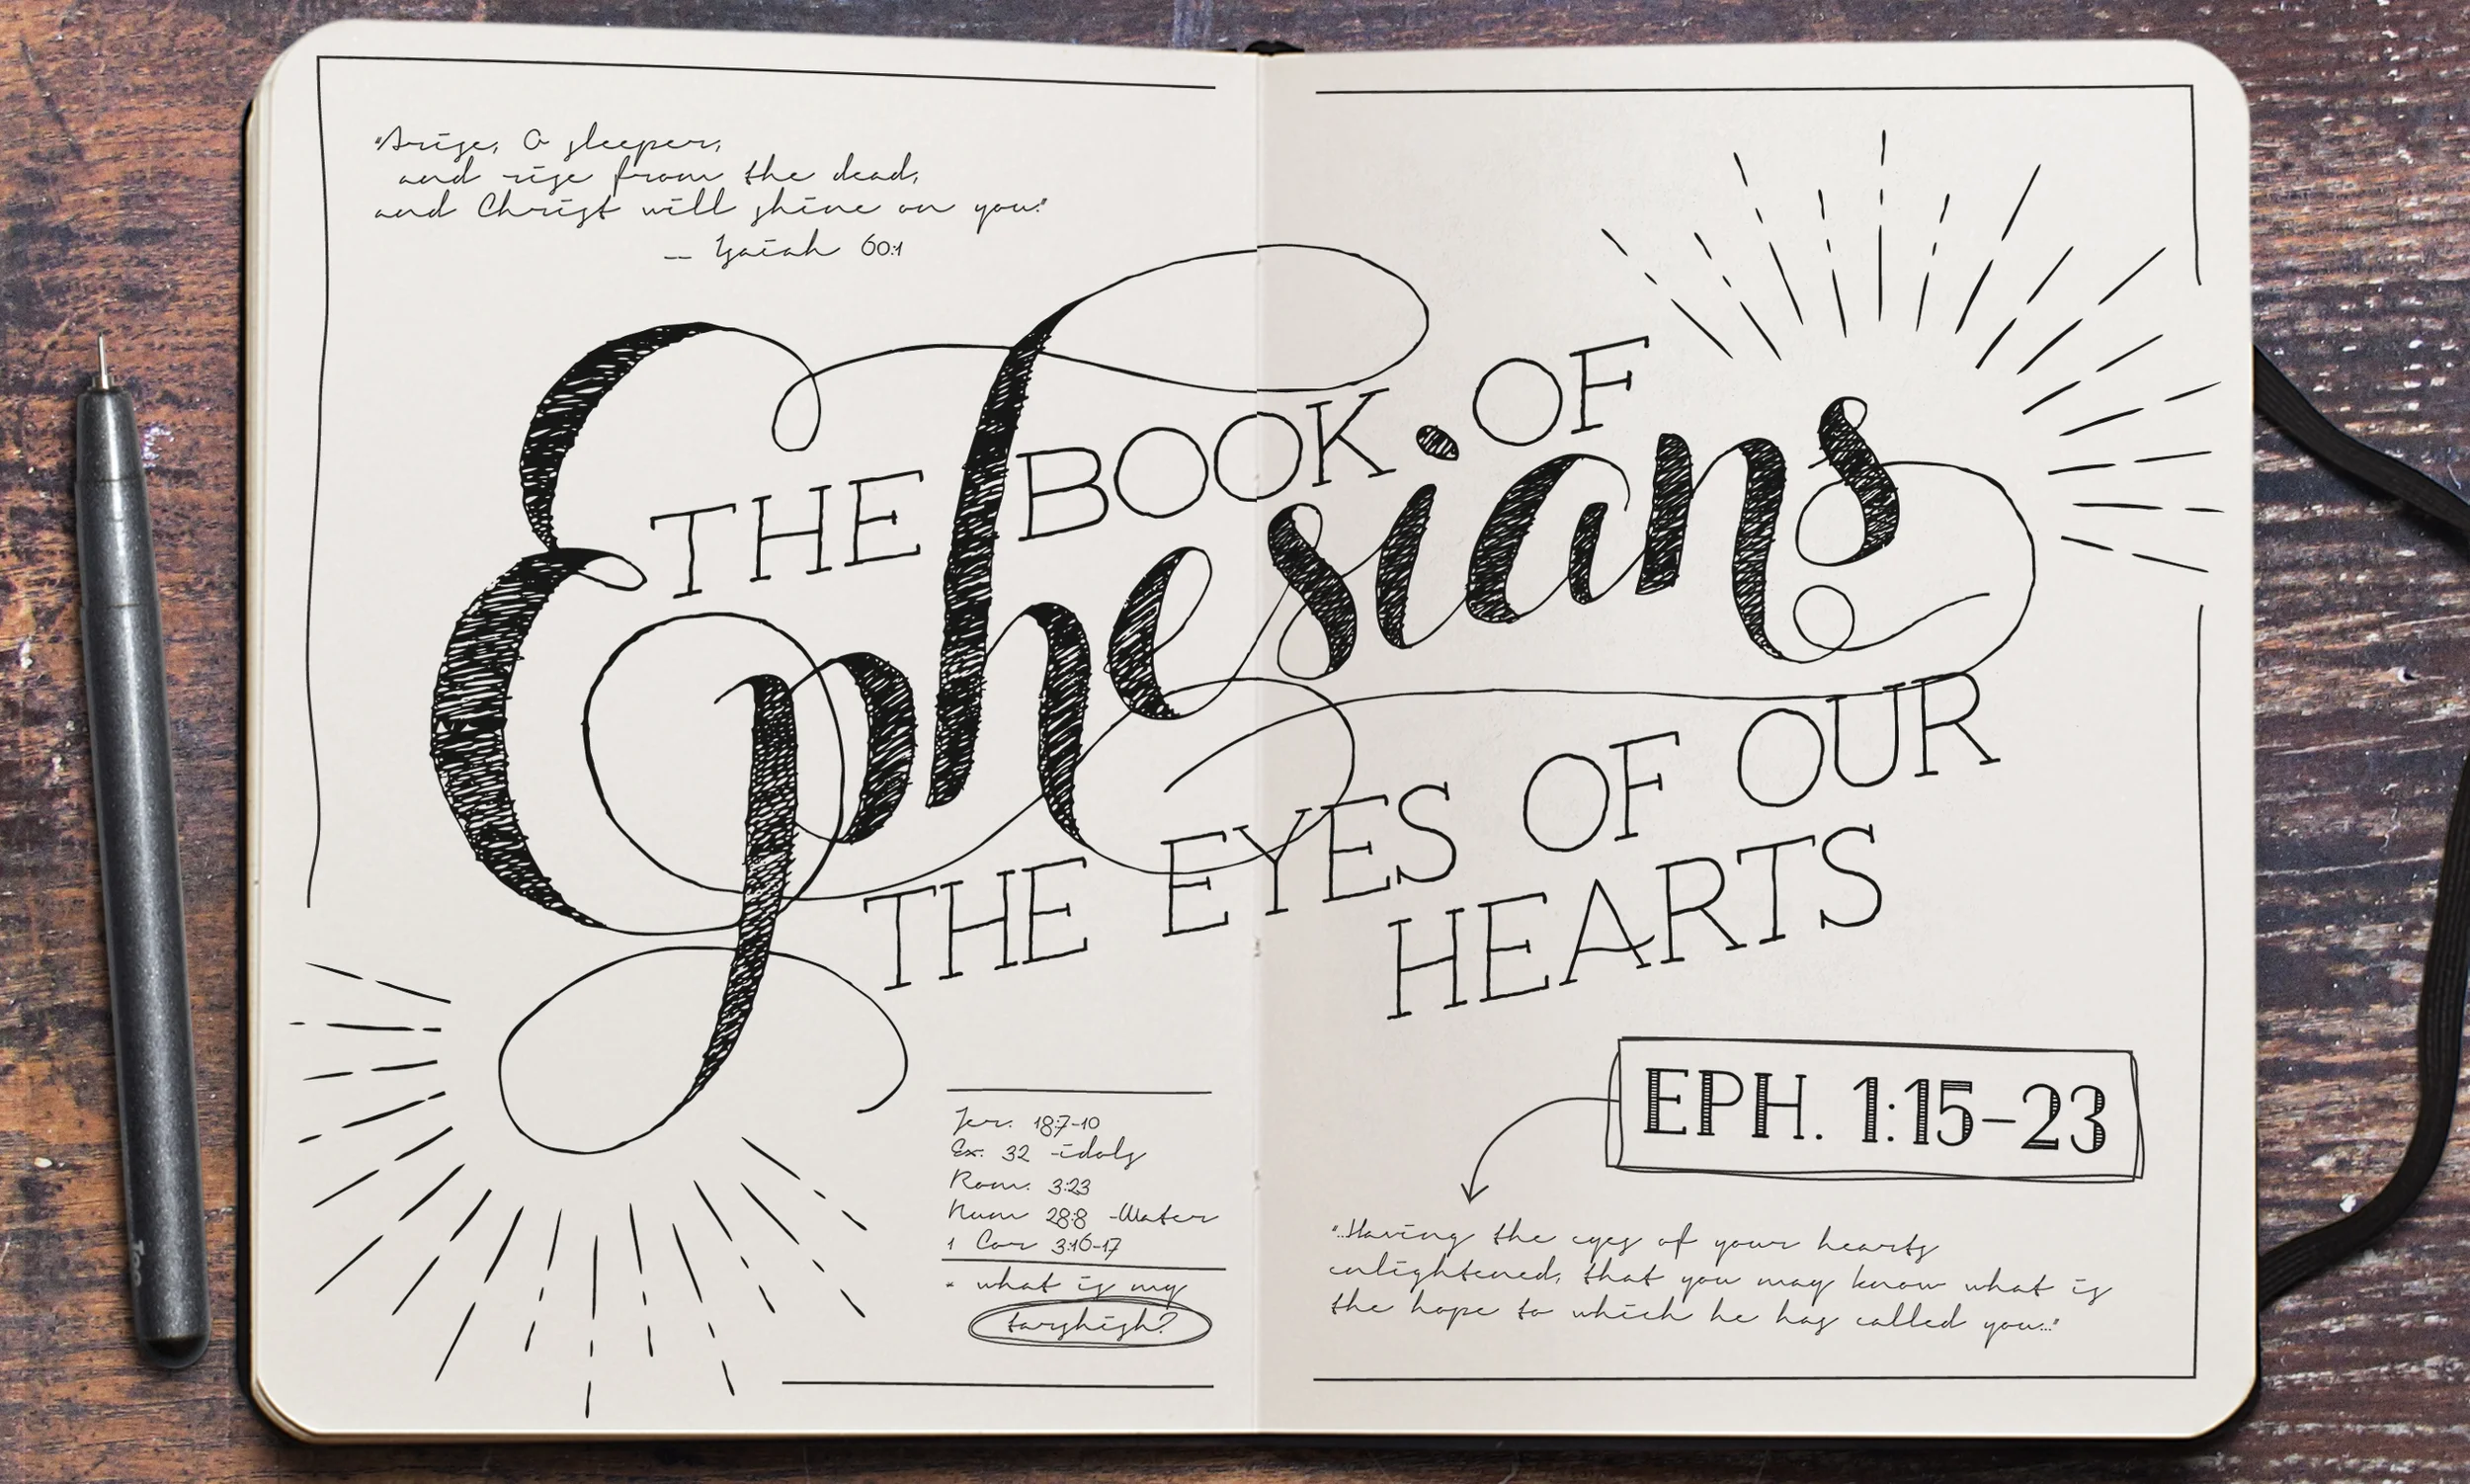 "Arise, O sleeper,
and rise from the dead,
and Christ will shine on you."
-- Isaiah 60:1
THE BOOK OF
Ephesians
THE EYES OF OUR
HEARTS
Jer. 18:7-10
Ex. 32 -idols
Rom. 3:23
Num 28:8 -Water
1 Cor 3:16-17
- what is my
tarshish?
EPH. 1:15-23
"...Having the eyes of your hearts
enlightened, that you may know what is
the hope to which he has called you..."